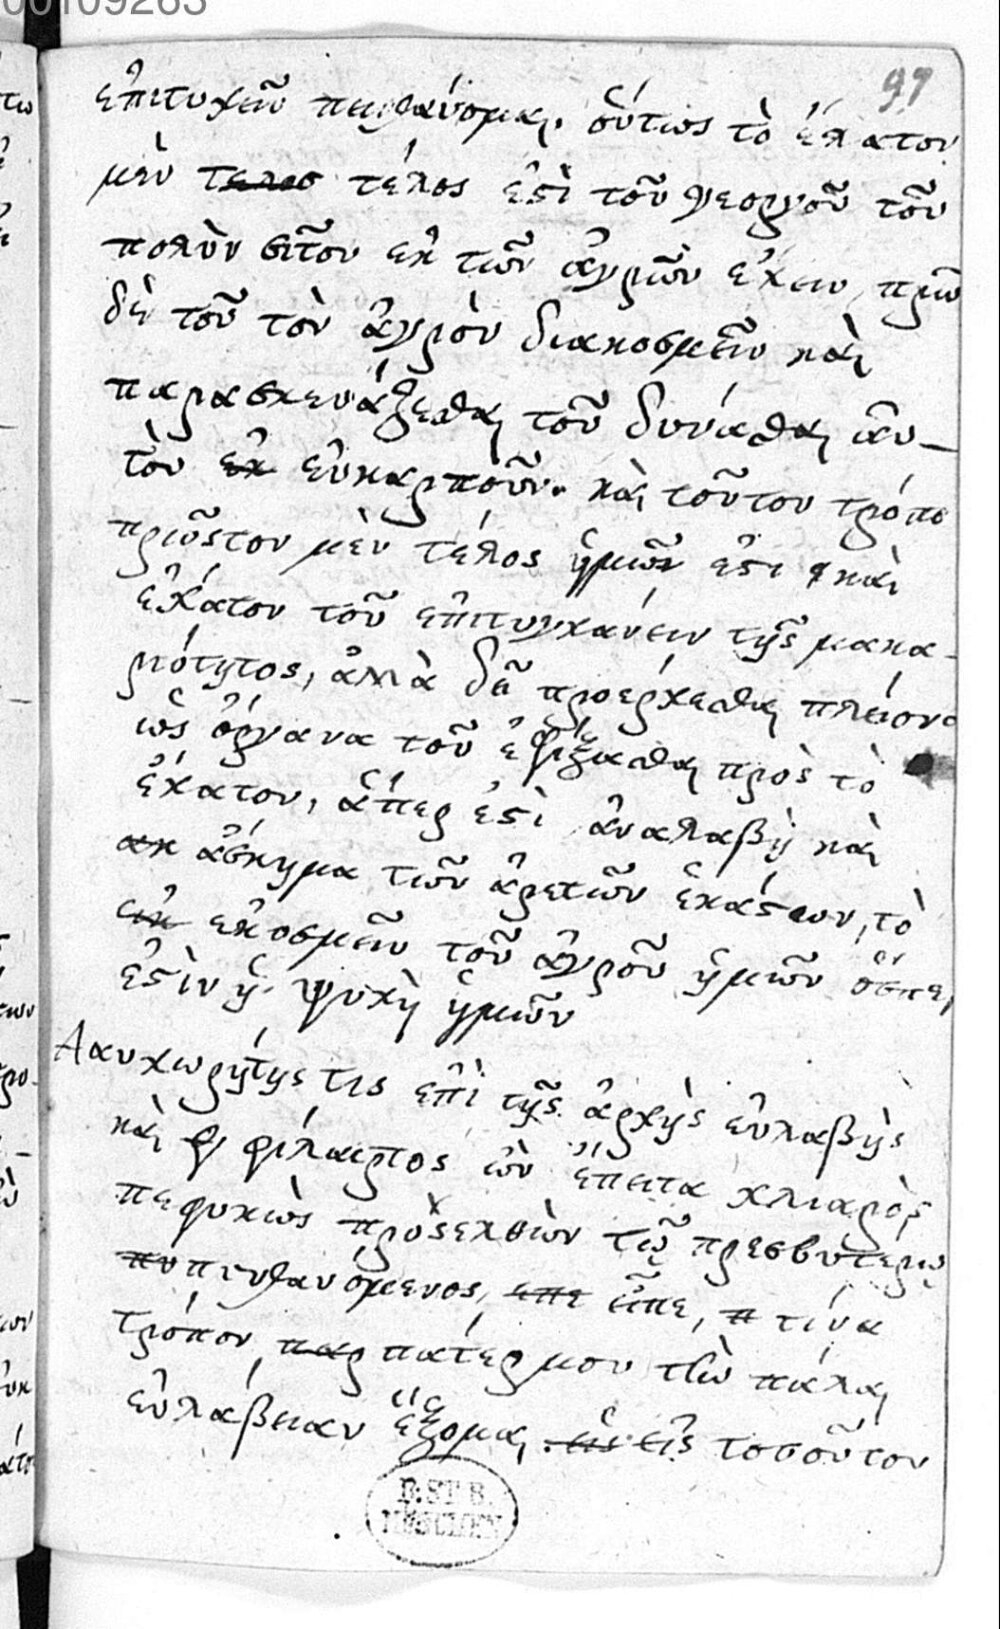 00109263
97
ἐπιτυχεῖν πειθάνομαι. οὕτως τὸ ἔχατον
μὲν τελοσ τέλος ἐστὶ τοῦ γεοργοῦ τοῦ
πολὺν σῖτον ἐκ τῶν ἀγρῶν ἔχειν, πρῶ
δὲ τοῦ τὸν ἀγρὸν διακοσμεῖν καὶ
παρασκευάζεσθαι τοῦ δύνασθαι ἀυ-
τὸν ἐκ εὐκαρποῦν. καὶ τοῦτον τρόπο
πρῶστον μὲν τέλος ἡμῶν ἐστι καὶ
ἔχατον τοῦ ἐπιτυγχάνειν τῆς μακα-
ριότητος, ἀλλὰ δεῖ προέρχεσθαι πλείονα
ὡς ὄργανα τοῦ ἐφίξασθαι πρὸς τὸ
ἔχατον, ἅπερ ἐστὶ ἀναλαβὴ καὶ
ακ ἄσκημα τῶν ἀρετῶν ἑκάστων, τὸ
εικ ἐκοσμεῖν τοῦ ἀγροῦ ἡμῶν ὅσπερ
ἐστὶν ἡ ψυχὴ ἡμῶν
Ααυχωρήτης τις ἐπὶ τῆς ἀρχῆς εὐλαβὴς
καὶ φ φίλαρτος ὢν ἔπειτα χλιαρὸς
πεφυκὼς πρὸσελθὼν τῷ πρεσβυτέρῳ
πυ πευθανόμενος, επε εἶπε, π τίνα
τρόπον παρ πάτερ μου τὼ πάλαι
εὐλάβειαν ἕξομαι. εἰς εἰς τοσοῦτον
B. ST. B.
MÜNCHEN